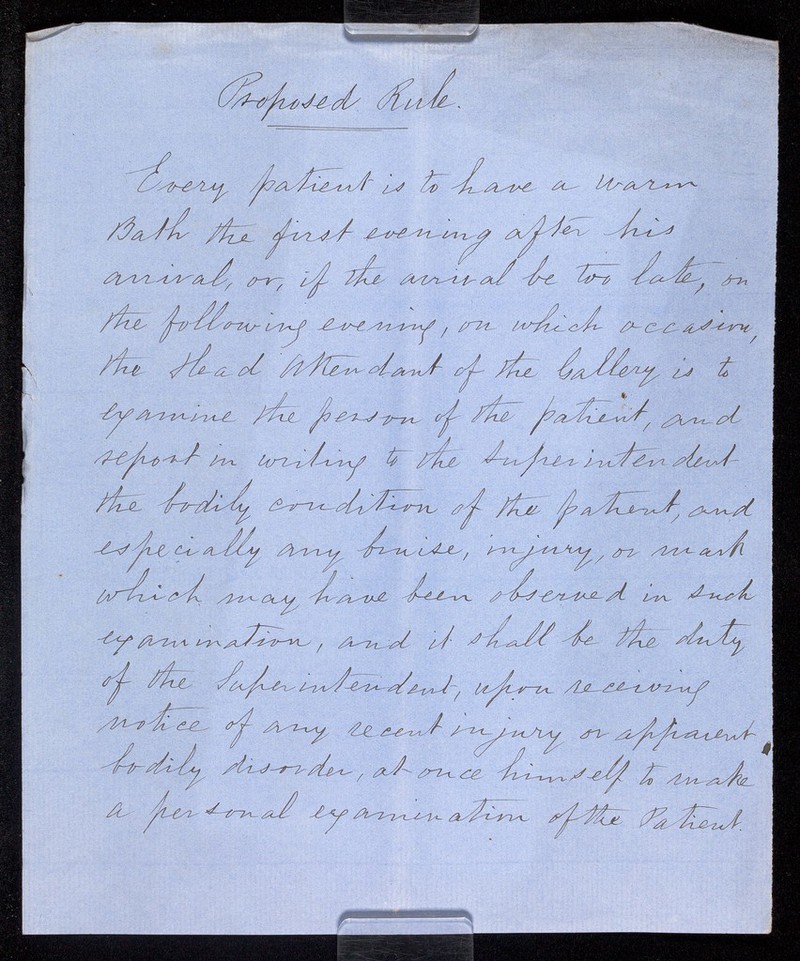 Proposed Rule.
Every patient is to have a warm
Bath the first evening after his
arrival, or, if the arrival be too late, on
the following evening, on which occasion,
the Head Attendant of the Gallery is to
examine the person of the patient, and
report in writing to the Superintendent
the bodily condition of the patient, and
especially any bruise, injury, or mark
which may have been observed in such
examination, and it shall be the duty
of the Superintendent, upon receiving
notice of any recent injury or apparent
bodily disorder, at once himself to make
a personal examination of the Patient.